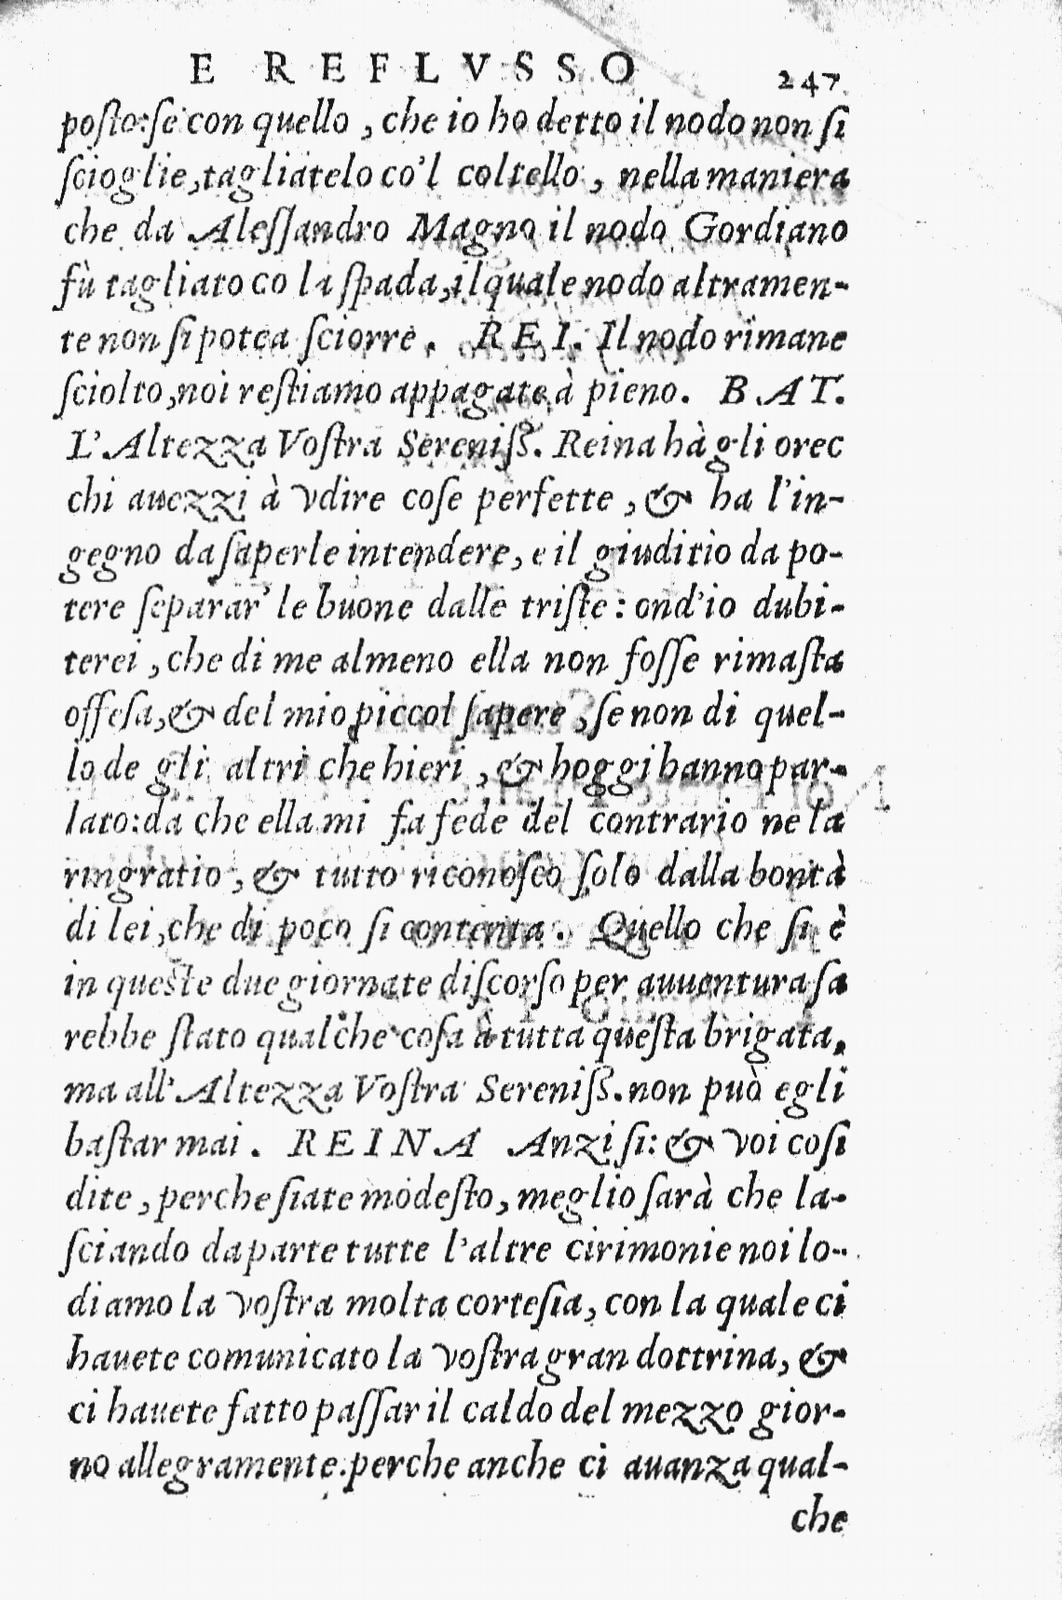 E REFLVSSO 247
posto: se con quello, che io ho detto il nodo non si
scioglie, tagliatelo co'l coltello, nella maniera
che da Alessandro Magno il nodo Gordiano
fù tagliato co la spada, il quale nodo altramen-
te non si potea sciorre. REI. Il nodo rimane
sciolto, noi restiamo appagate à pieno. BAT.
L'Altezza Vostra Sereniss. Reina hà gli orec
chi auezzi à vdire cose perfette, & ha l'in-
gegno da saperle intendere, e il giuditio da po-
tere separar' le buone dalle triste: ond'io dubi-
terei, che di me almeno ella non fosse rimasta
offesa, & del mio piccol sapere, se non di quel-
lo de gli altri che hieri, & hoggi hanno par-
lato: da che ella mi fa fede del contrario ne la
ringratio, & tutto riconosco solo dalla bontà
di lei, che di poco si contenta. Quello che si è
in queste due giornate discorso per auuentura sa
rebbe stato qualche cosa à tutta questa brigata,
ma all'Altezza Vostra Sereniss. non può egli
bastar mai. REINA Anzi si: & voi cosi
dite, perche siate modesto, meglio sarà che la-
sciando da parte tutte l'altre cirimonie noi lo-
diamo la vostra molta cortesia, con la quale ci
hauete comunicato la vostra gran dottrina, &
ci hauete fatto passar il caldo del mezzo gior-
no allegramente. perche anche ci auanza qual-
che